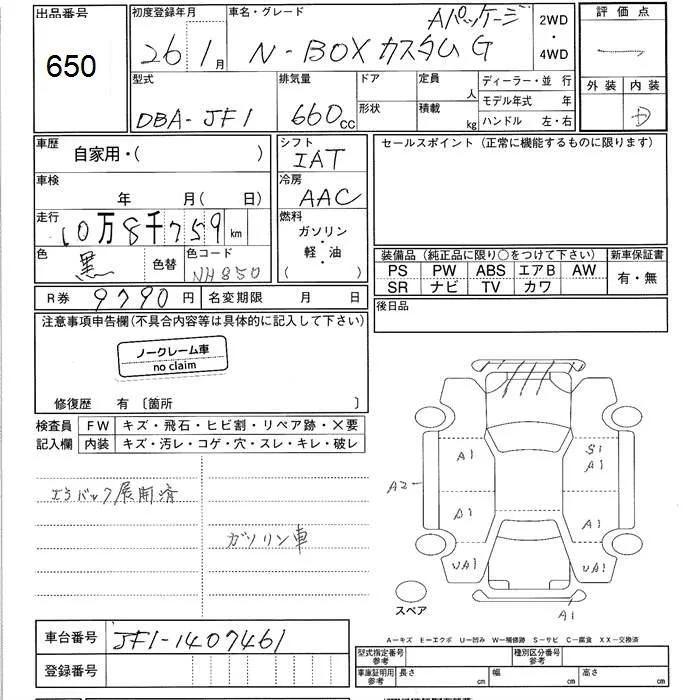 出品番号
650
初度登録年月
26 1月
車名・グレード
Aパッケージ
N-BOX カスタム G
2WD
・
4WD
評価点
外装 内装
D
型式
DBA-JF1
排気量
660cc
ドア
形状
定員
人
積載
kg
ディーラー・並 行
モデル年式 年
ハンドル 左・右
車歴
自家用・( )
車検
年 月( 日)
走行
10万8千759km
色
黒
色替
色コード
NH850
シフト
IAT
冷房
AAC
燃料
ガソリン
・
軽・油
( )
セールスポイント(正常に機能するものに限ります)
装備品(純正品に限り○をつけて下さい)
新車保証書
PS PW ABS エアB AW
SR ナビ TV カワ
有・無
R券 9790円
名変期限 月 日
後日品
注意事項申告欄(不具合内容等は具体的に記入して下さい)
ノークレーム車
no claim
修復歴 有 〔箇所 〕
検査員
記入欄
FW キズ・飛石・ヒビ割・リペア跡・×要
内装 キズ・汚レ・コゲ・穴・スレ・キレ・破レ
エアバック展開済
ガソリン車
A1
S1
A1
A2
A1
A1
UA1
UA1
A1
スペア
A-キズ E-エクボ U-凹み W-補修跡 S-サビ C-腐食 XX-交換済
車台番号 JF1-1407461
登録番号
型式指定番号
参考
種別区分番号
参考
車庫証明用
参考
長さ cm
幅 cm
高さ cm